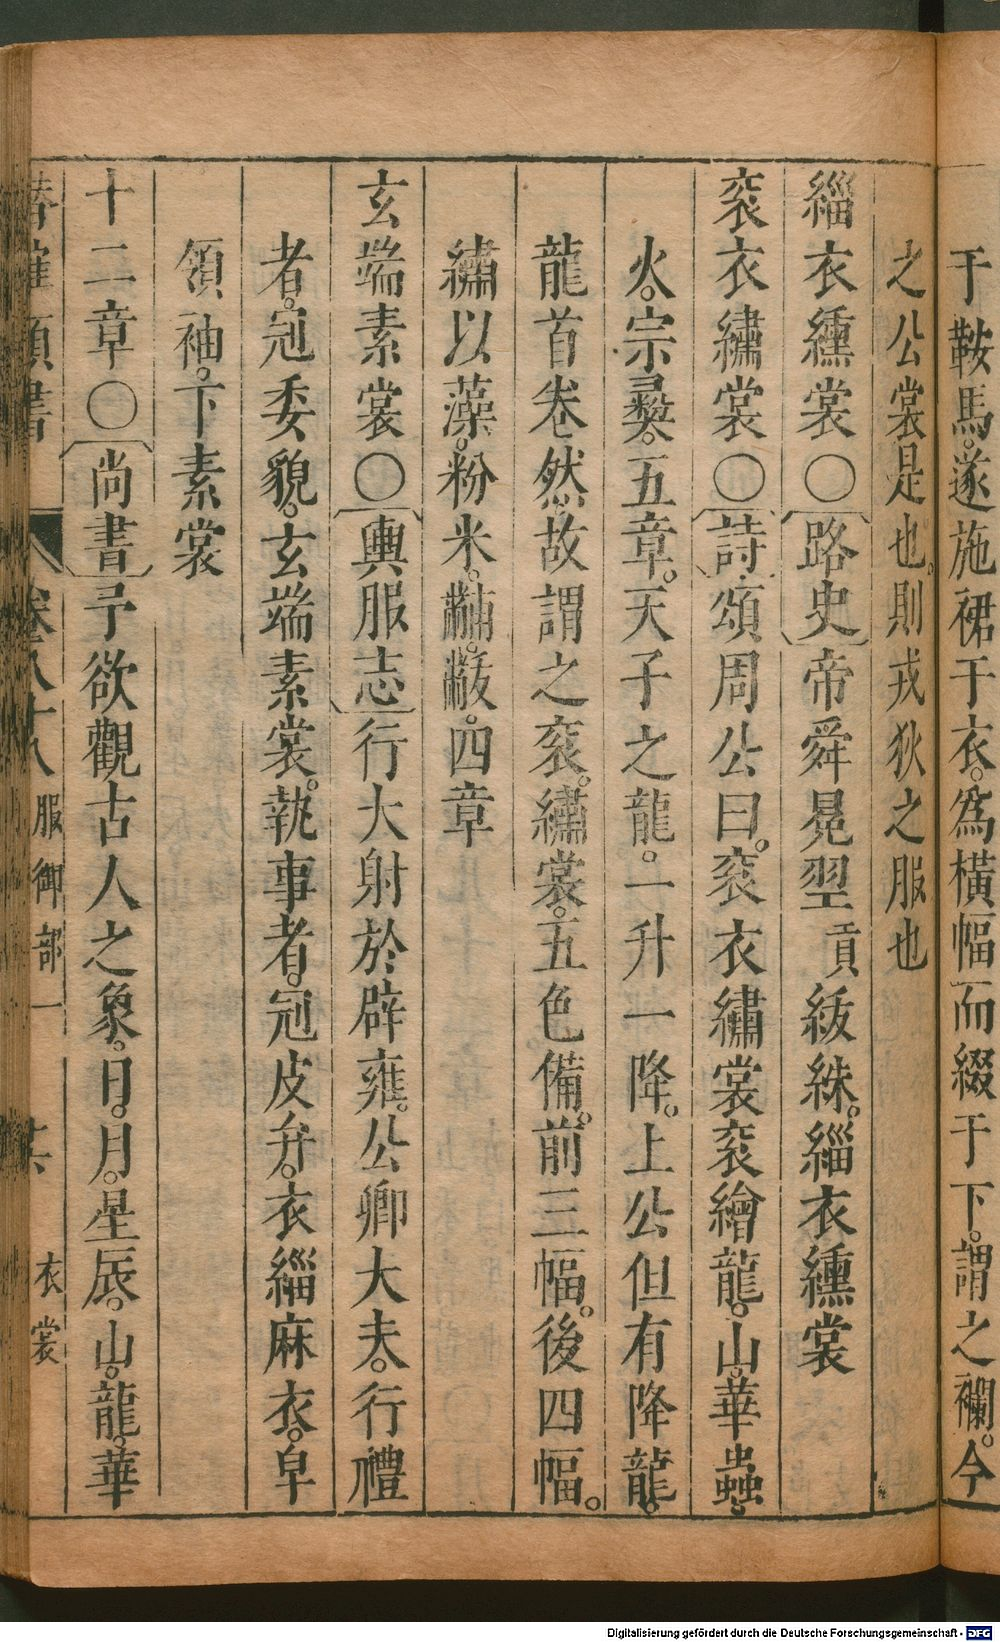 于鞍馬。遂施裙于衣。為橫幅而綴于下。謂之襴。今
之公裳是也。則戎狄之服也
緇衣纁裳〇〔路史〕帝舜冕翌貢紱絑。緇衣纁裳
袞衣繡裳〇〔詩〕頌周公曰。袞衣繡裳袞繪龍。山。華蟲。
火。宗彝。五章。天子之龍。一升一降。上公但有降龍。
龍首卷然。故謂之袞。繡裳。五色備。前三幅。後四幅。
繡以藻。粉米。黼。黻。四章
玄端素裳〇〔輿服志〕行大射於辟雍。公卿大夫。行禮
者。冠委貌。玄端素裳。執事者。冠皮弁。衣緇麻衣。皁
領袖。下素裳
十二章〇〔尚書〕予欲觀古人之象。日。月。星辰。山。龍。華
類書 卷八十八 服御部一 衣裳
Digitalisierung gefördert durch die Deutsche Forschungsgemeinschaft - DFG